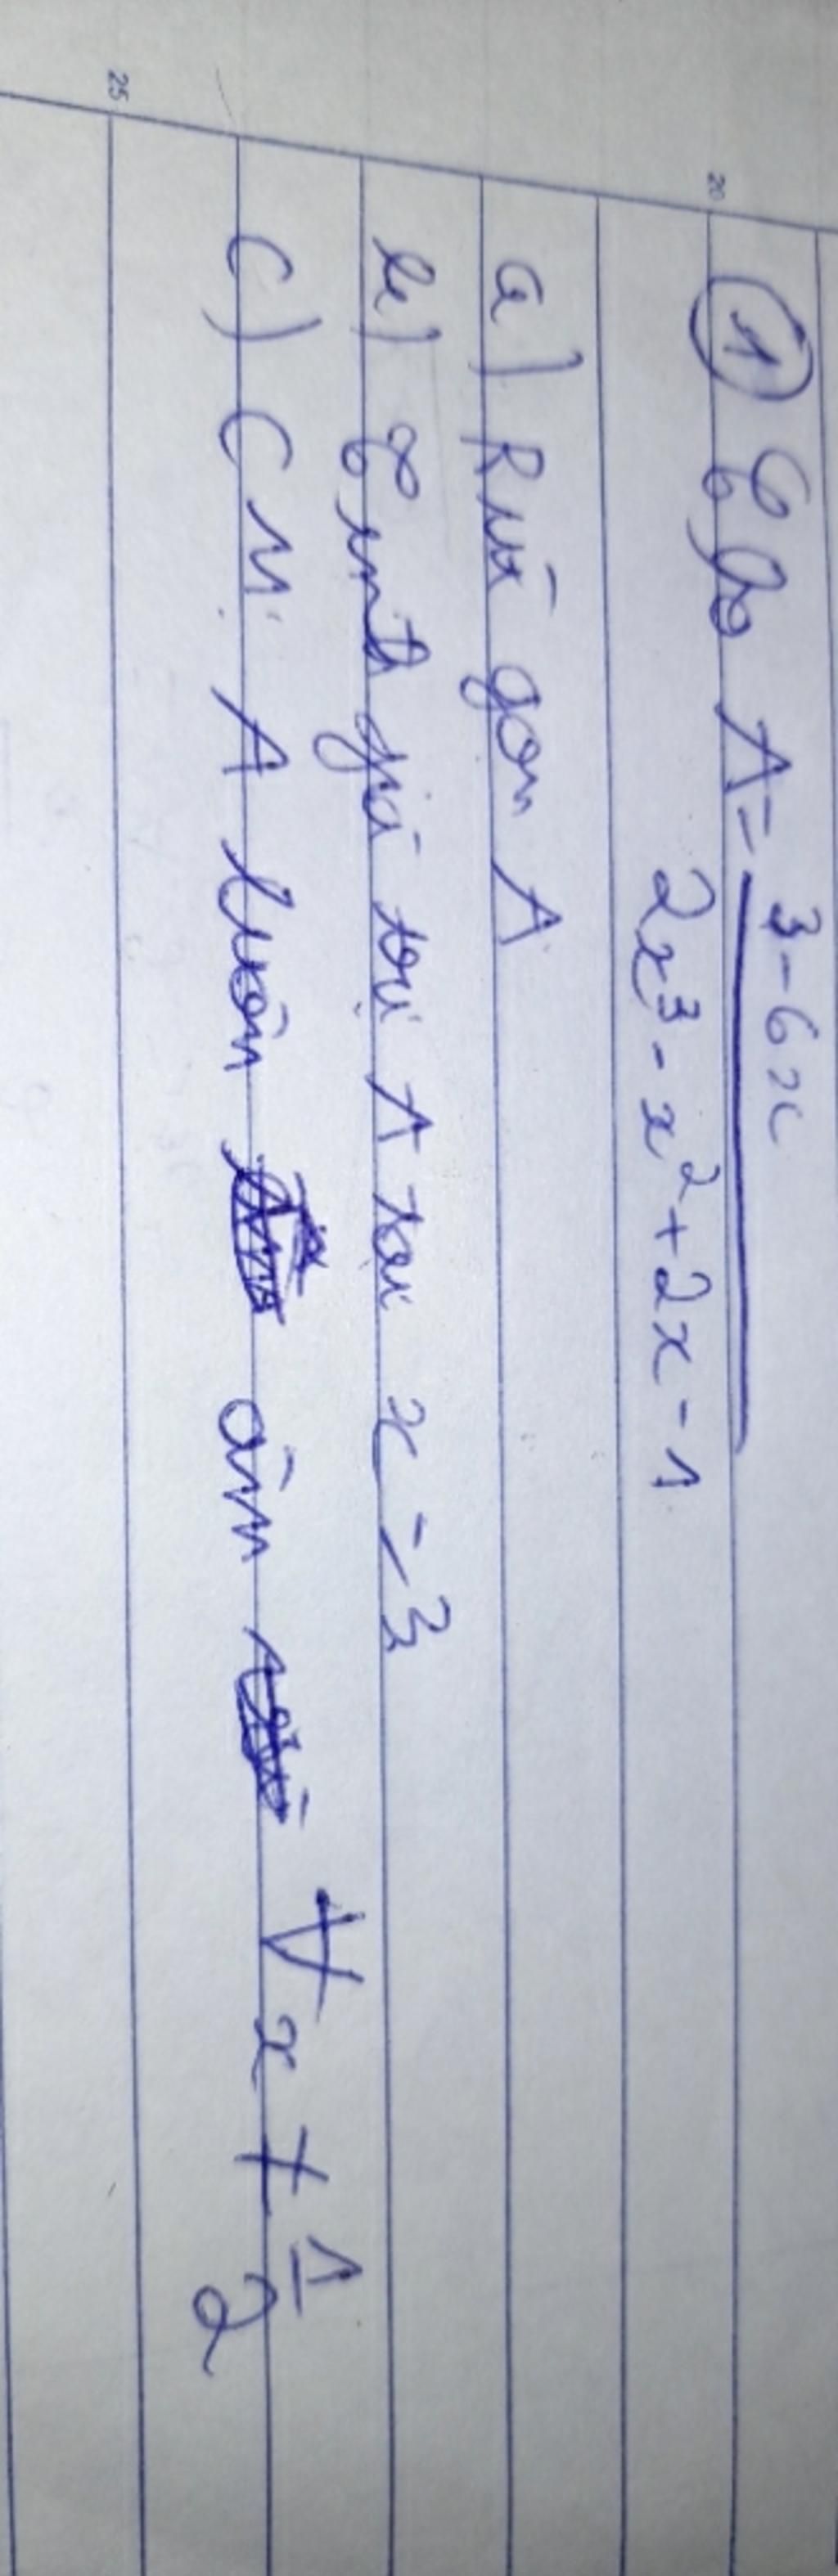 ① Cho A = 3 - 6x / 2x³ - x² + 2x - 1
20
a) Rút gọn A
b) Tính giá trị A tại x = 3
c) CM A luôn âm ∀ x ≠ 1/2
25